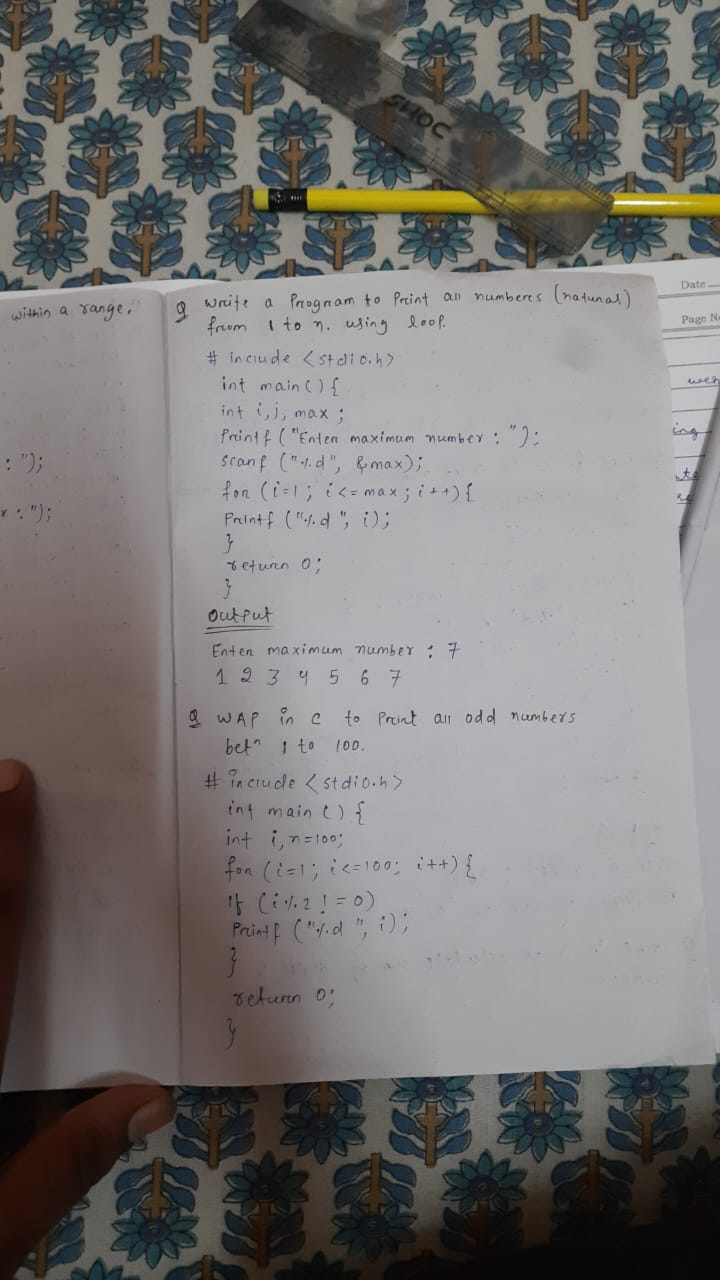 SHOC
Date
Page No
within a range.
: ");
r : ");
Q Write a Program to Print all numbers (natural)
from 1 to n. using loop.
# include <stdio.h>
int main() {
int i,j, max ;
Printf ("Enter maximum number : ");
scanf ("%d", &max);
for (i=1; i<= max; i++) {
Printf ("%d ", i);
}
return 0;
}
Output
Enter maximum number : 7
1 2 3 4 5 6 7
Q WAP in C to Print all odd numbers
betn 1 to 100.
# include <stdio.h>
int main () {
int i, n=100;
for (i=1; i<=100; i++) {
If (i%2 ! = 0)
Printf ("%d ", i);
}
return 0;
}
ing